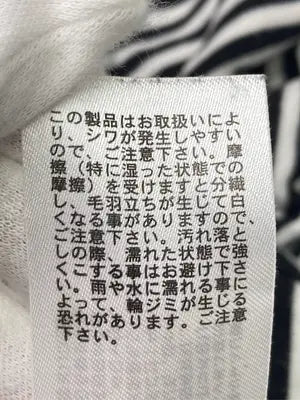 この製品はお取扱いによ
り、シワが発生しやすい
ので、ご注意下さい。摩
擦（特に湿った状態での
摩擦）を受けますと分繊
し、毛羽立ちが生じて白
くなる事がありますので、
ご注意下さい。汚れ落と
しの際、濡れた状態で強さ
くこする事はお避け下
い。雨や水に濡れる事に
よって、輪ジミが生じる
恐れがあります。ご注意
下さい。